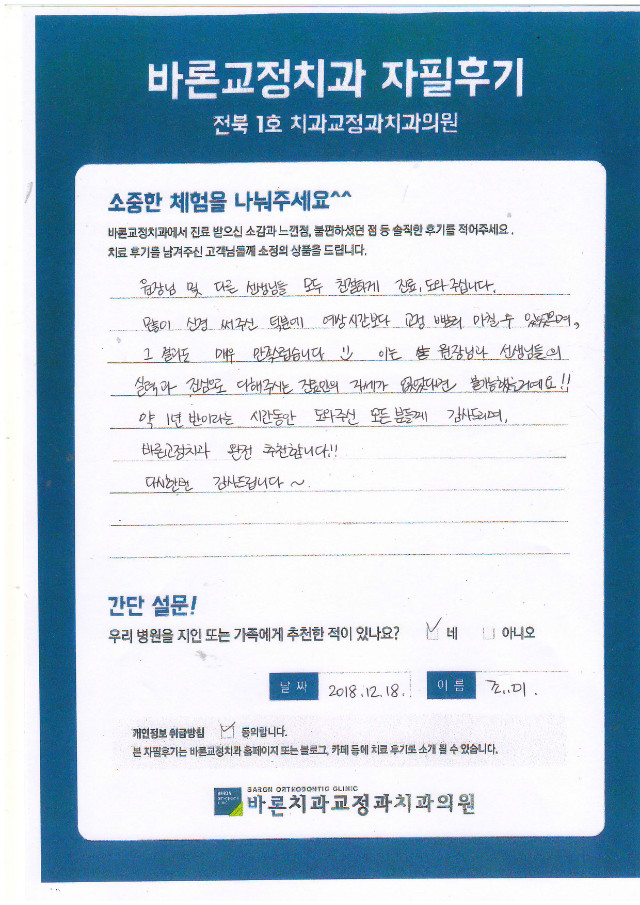 바론교정치과 자필후기
전북 1호 치과교정과치과의원
소중한 체험을 나눠주세요^^
바론교정치과에서 진료 받으신 소감과 느낀점, 불편하셨던 점 등 솔직한 후기를 적어주세요.
치료 후기를 남겨주신 고객님들께 소정의 상품을 드립니다.
원장님 및 다른 선생님들 모두 친절하게 진료, 도와주십니다.
많이 신경 써주신 덕분에 예상시간보다 교정 빨리 마칠 수 있었으며,
그 결과도 매우 만족스럽습니다 이는 원장님과 선생님들의
실력과 진심으로 다해주시는 진료만의 자세가 없었다면 불가능했을거예요!!
약 1년 반이라는 시간동안 도와주신 모든 분들께 감사드리며,
바론교정치과 완전 추천합니다!!
다시한번 감사드립니다~
간단 설문!
우리 병원을 지인 또는 가족에게 추천한 적이 있나요? 네 아니오
날짜 2018.12.18. 이름 조..미.
개인정보 취급방침 동의합니다.
본 자필후기는 바론교정치과 홈페이지 또는 블로그, 카페 등에 치료 후기로 소개 될 수 있습니다.
BARON ORTHODONTIC CLINIC
바론치과교정과치과의원